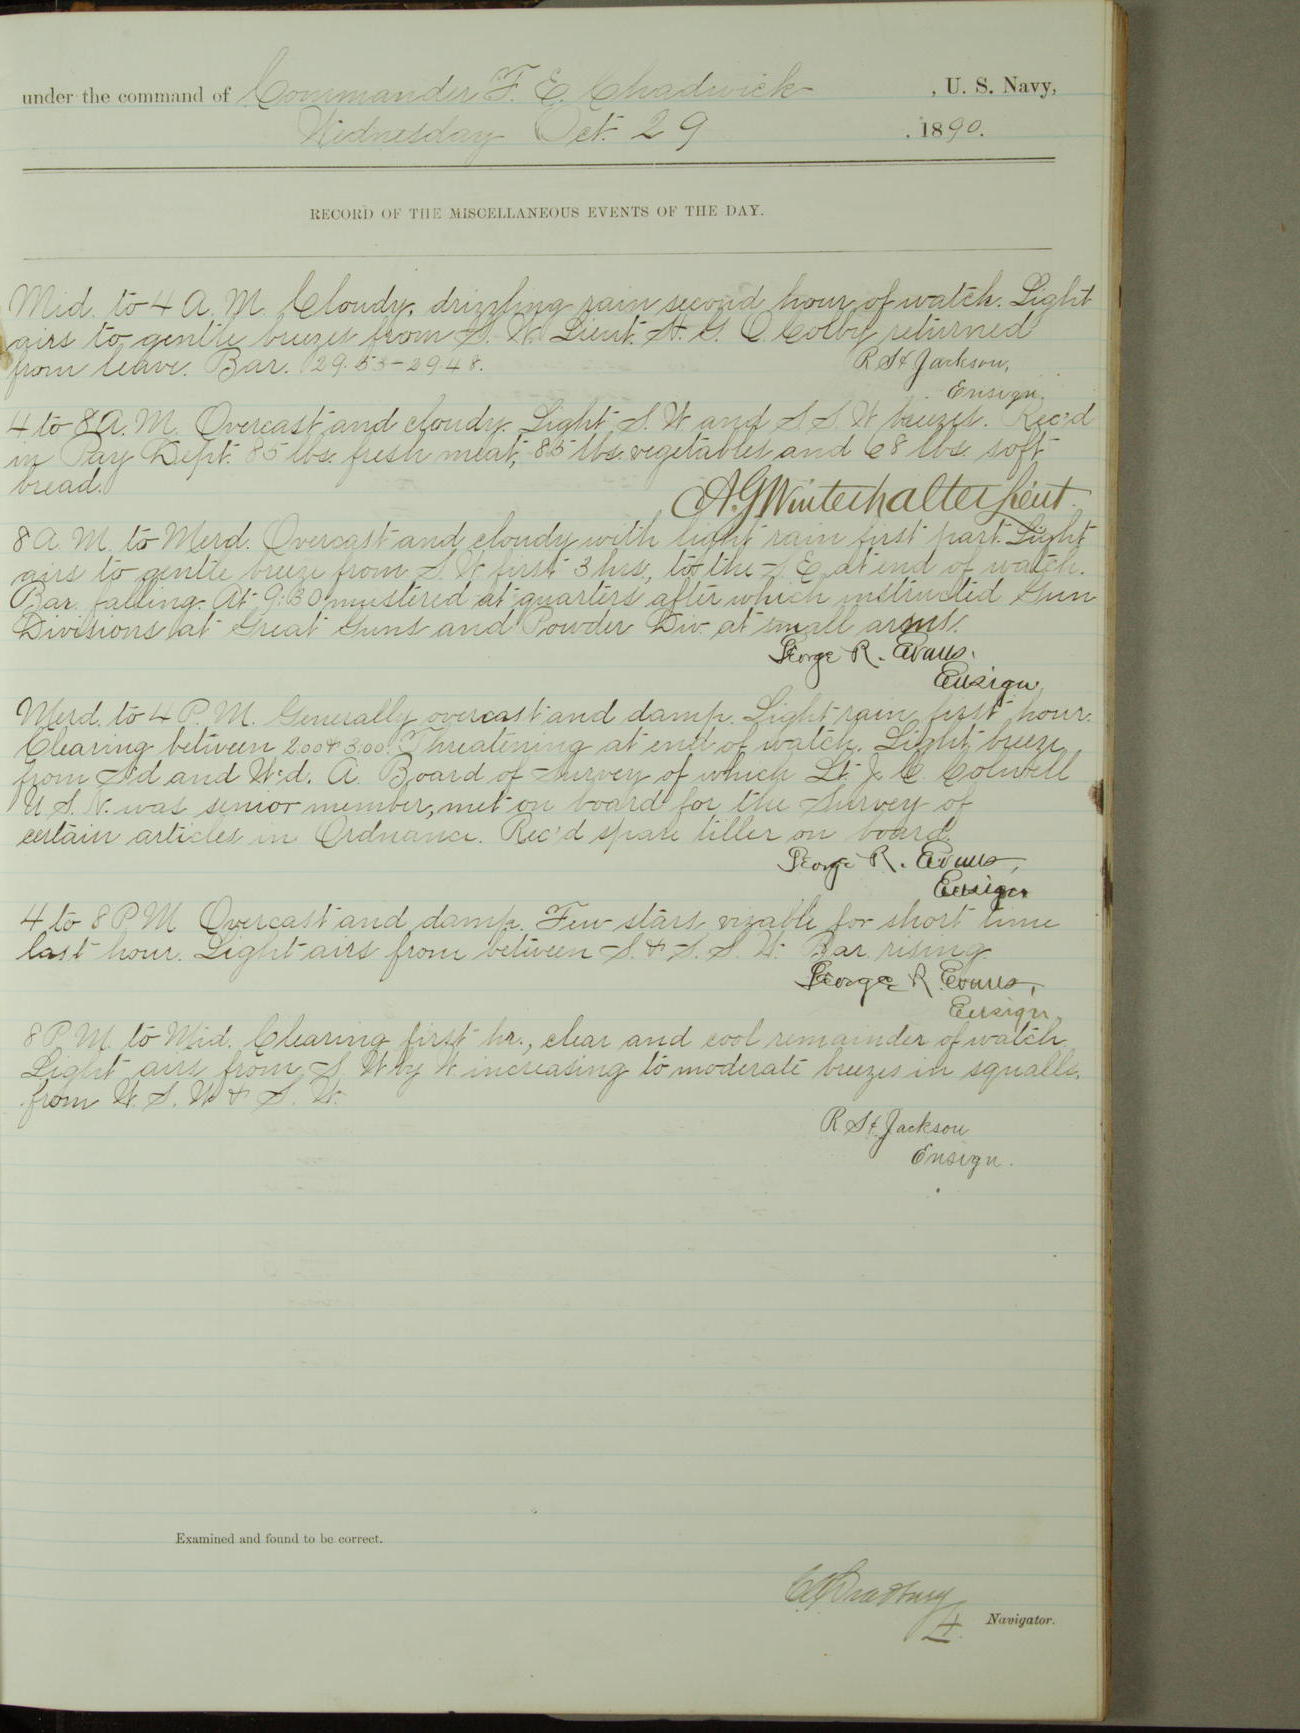 under the command of Commander F. E. Chadwick , U. S. Navy,
Wednesday Oct. 29 . 1890.
RECORD OF THE MISCELLANEOUS EVENTS OF THE DAY.
Mid. to 4 A. M. Cloudy, drizzling rain second hour of watch. Light
airs to gentle breezes from S. W. Lieut. H. G. O. Colby returned
from leave. Bar. 29.53-29.48.
R St Jackson,
Ensign.
4 to 8 A. M. Overcast and cloudy. Light S. W and S S. W breezes. Rec'd
in Pay Dept. 85 lbs. fresh meat, 85 lbs. vegetables and 68 lbs. soft
bread.
A. G. Winterhalter Lieut.
8 A. M. to Merd. Overcast and cloudy with light rain first part. Light
airs to gentle breeze from S. W first 3 hrs, to the S E at end of watch.
Bar. falling. At 9:30 mustered at quarters after which instructed Gun
Divisions at Great Guns and Powder Div. at small arms.
George R. Evans.
Ensign,
Merd. to 4 P. M. Generally overcast and damp. Light rain first hour.
Clearing between 2.00 & 3.00. Threatening at end of watch. Light breeze
from S'd and W'd. A. Board of Survey of which Lt. J. C. Colwell
U. S. N. was senior member, met on board for the Survey of
certain articles in Ordnance. Rec'd spare tiller on board.
George R. Evans,
Ensign
4 to 8 P M Overcast and damp. Few stars vizable for short time
last hour. Light airs from between S. & S. S. W. Bar. rising
George R. Evans,
Ensign.
8 P. M. to Mid. Clearing first hr., clear and cool remainder of watch
Light airs from S. W by W. increasing to moderate breezes in squalls.
from W. S. W & S. W.
R St. Jackson
Ensign.
Examined and found to be correct.
Navigator.